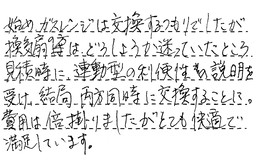 始めガスレンジは交換するつもりでしたが
換気扇等はどうしようか迷っていたところ
見積時に、連動型の利便性も説明を
受け、結局、両方同時に交換することに。
費用は倍掛りましたがとても快適で
満足しています。